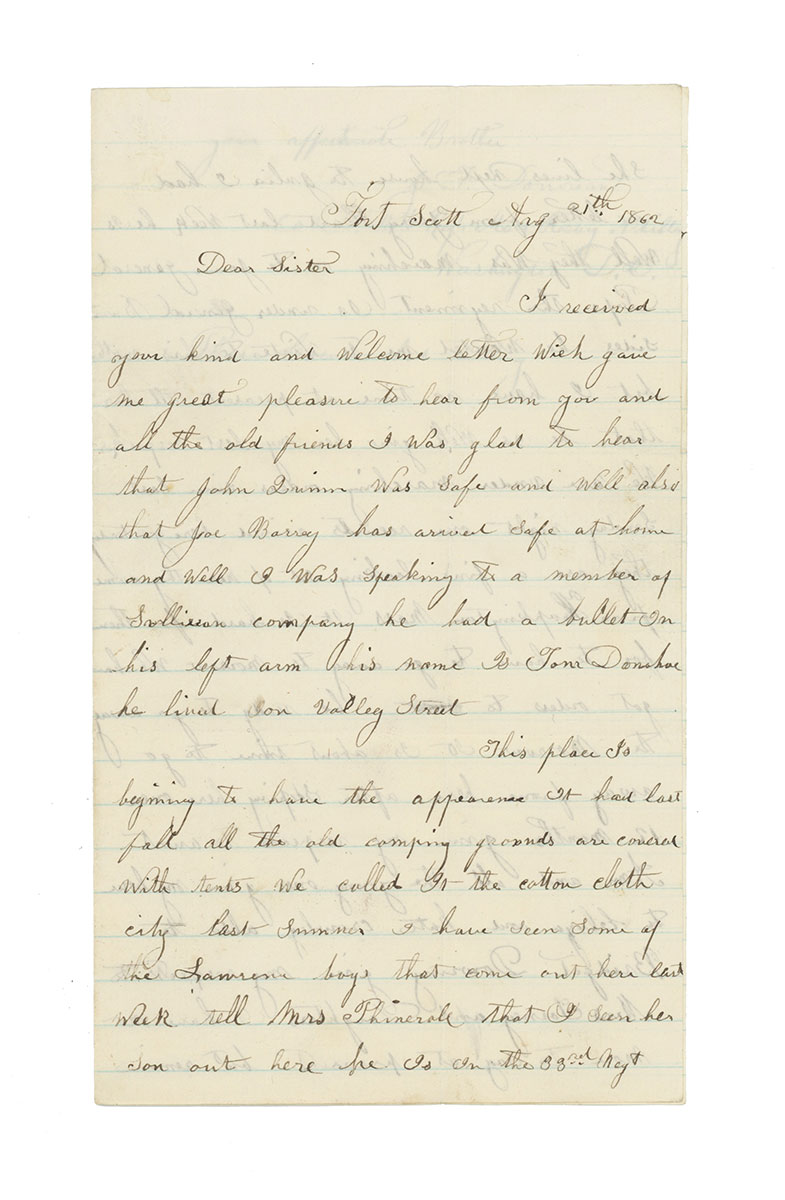 Fort Scott Aug 21th 1862
Dear Sister
I received
your kind and Welcome letter Wich gave
me great pleasure to hear from you and
all the old friends I Was glad to hear
that John Quinn Was Safe and Well also
that Joe Barrey has arived Safe at home
and Well I Was Speaking to a member of
Sullivan company he had a bullet In
his left arm his name Is Tom Donohoe
he lived on Valley Street
This place Is
begining to have the appearence It had last
fall all the old camping grounds are covered
With tents We called It the cotton cloth
city last Summer I have Seen Some of
the Lawrence boys that come out here last
Week tell Mrs that I Seen her
Son out here he Is In the 33rd Regt